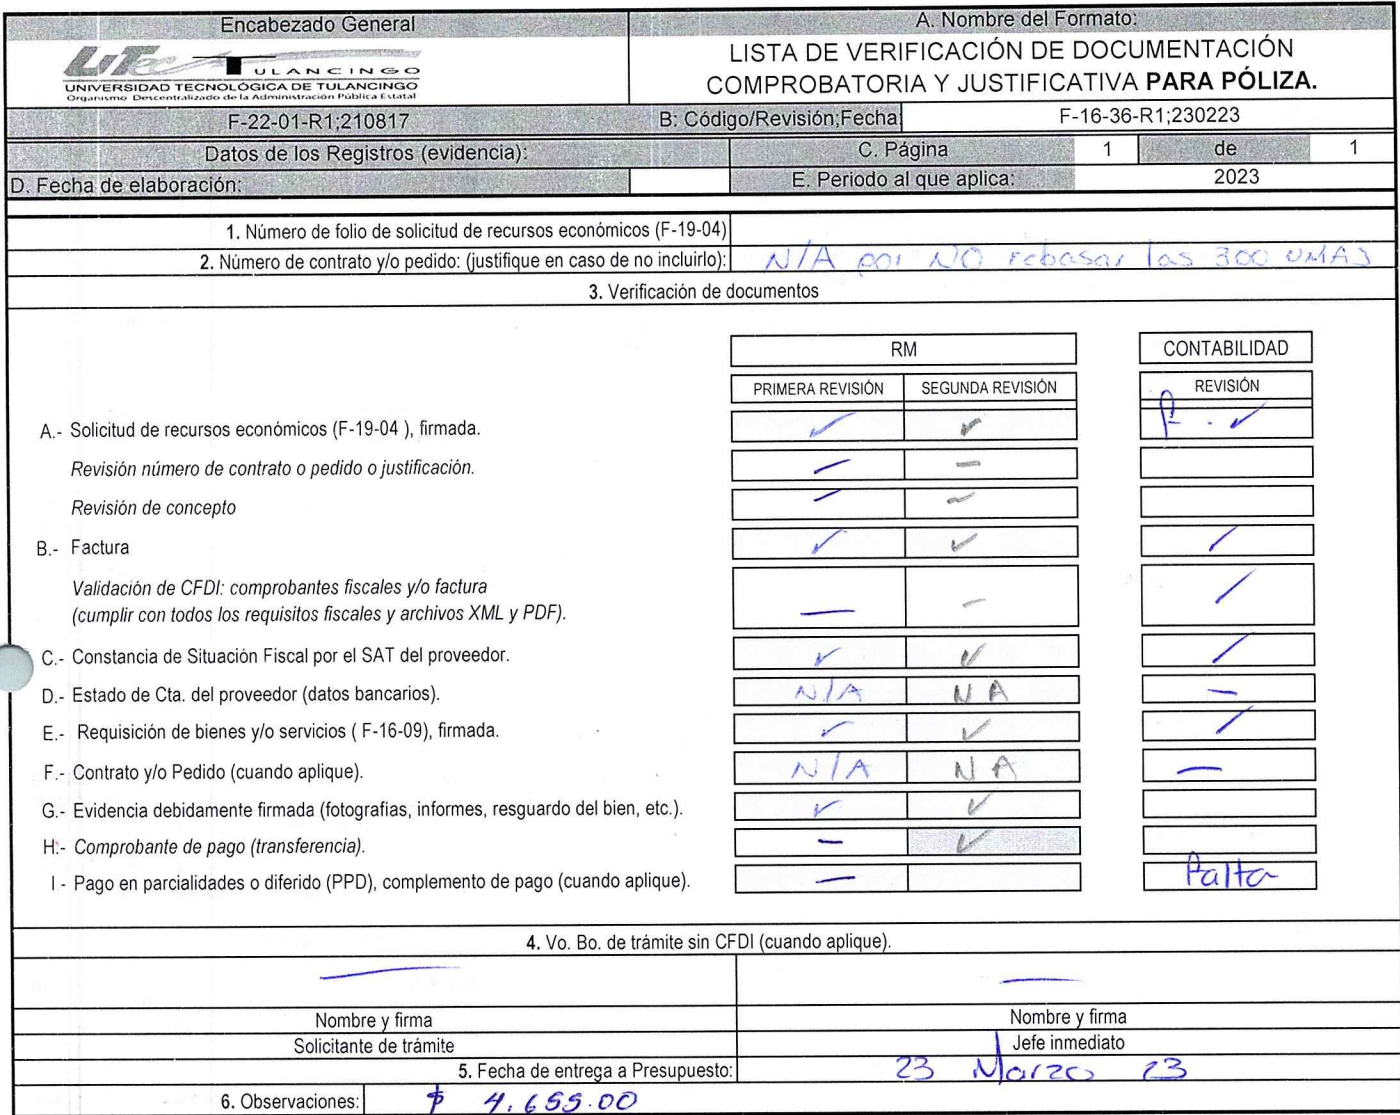 Encabezado General
A. Nombre del Formato:
UTec TULANCINGO
UNIVERSIDAD TECNOLÓGICA DE TULANCINGO
Organismo Descentralizado de la Administración Pública Estatal
LISTA DE VERIFICACIÓN DE DOCUMENTACIÓN
COMPROBATORIA Y JUSTIFICATIVA PARA PÓLIZA.
F-22-01-R1;210817 B: Código/Revisión;Fecha: F-16-36-R1;230223
Datos de los Registros (evidencia): C. Página 1 de 1
D. Fecha de elaboración: E. Periodo al que aplica: 2023
1. Número de folio de solicitud de recursos económicos (F-19-04)
2. Número de contrato y/o pedido: (justifique en caso de no incluirlo): N/A por NO rebasar las 300 UMAS
3. Verificación de documentos
RM CONTABILIDAD
PRIMERA REVISIÓN SEGUNDA REVISIÓN REVISIÓN
A.- Solicitud de recursos económicos (F-19-04 ), firmada. ✓ ✓ ✓
Revisión número de contrato o pedido o justificación. — —
Revisión de concepto — ~
B.- Factura ✓ ✓ /
Validación de CFDI: comprobantes fiscales y/o factura
(cumplir con todos los requisitos fiscales y archivos XML y PDF). — — /
C.- Constancia de Situación Fiscal por el SAT del proveedor. ✓ ✓ /
D.- Estado de Cta. del proveedor (datos bancarios). N/A N A —
E.- Requisición de bienes y/o servicios ( F-16-09), firmada. ✓ ✓ /
F.- Contrato y/o Pedido (cuando aplique). N/A N A —
G.- Evidencia debidamente firmada (fotografias, informes, resguardo del bien, etc.). ✓ ✓
H.- Comprobante de pago (transferencia). — ✓
I.- Pago en parcialidades o diferido (PPD), complemento de pago (cuando aplique). — Falta
4. Vo. Bo. de trámite sin CFDI (cuando aplique).
— —
Nombre y firma Nombre y firma
Solicitante de trámite Jefe inmediato
5. Fecha de entrega a Presupuesto: 23 Marzo 23
6. Observaciones: $ 4,655.00